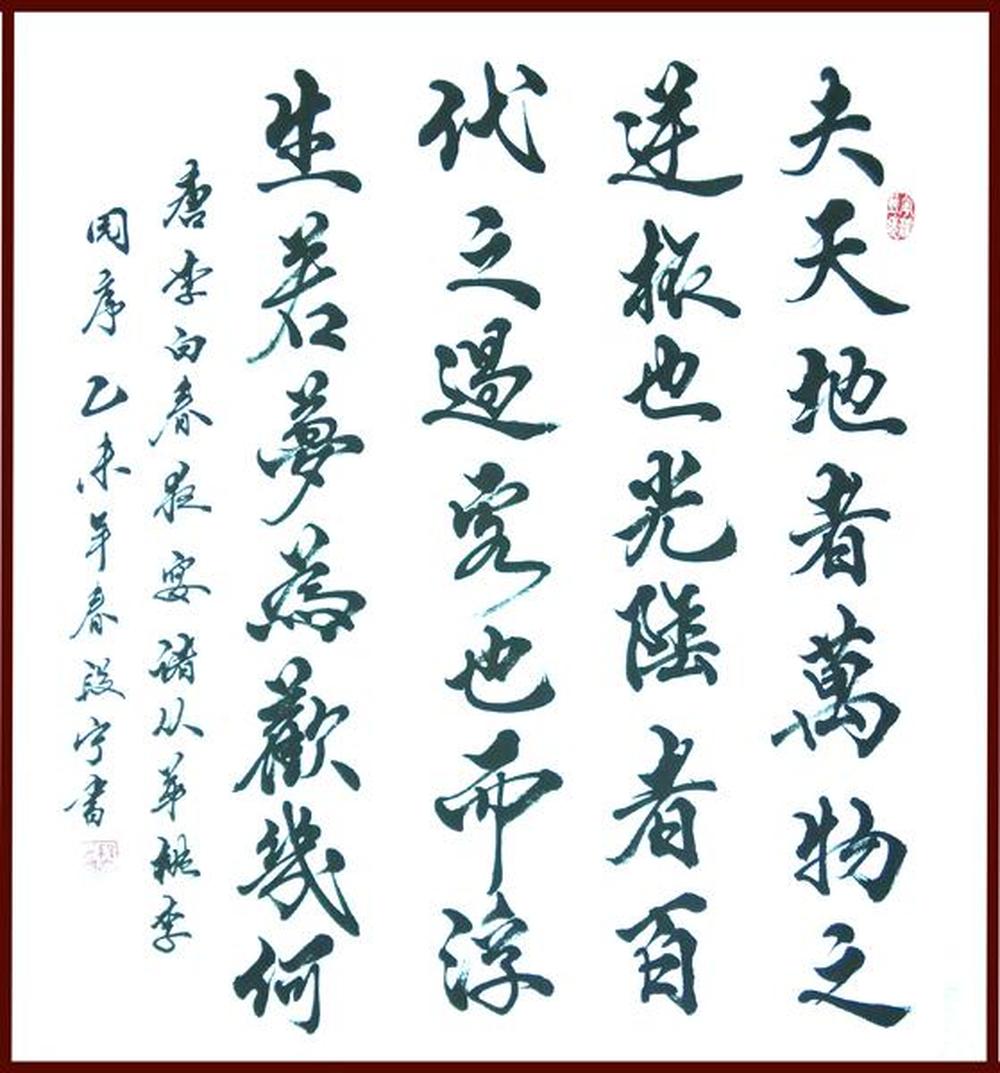 夫天地者萬物之
逆旅也光陰者百
代之過客也而浮
生若夢為歡幾何
唐李白春夜宴諸从弟桃李
園序 乙未年春段宁書